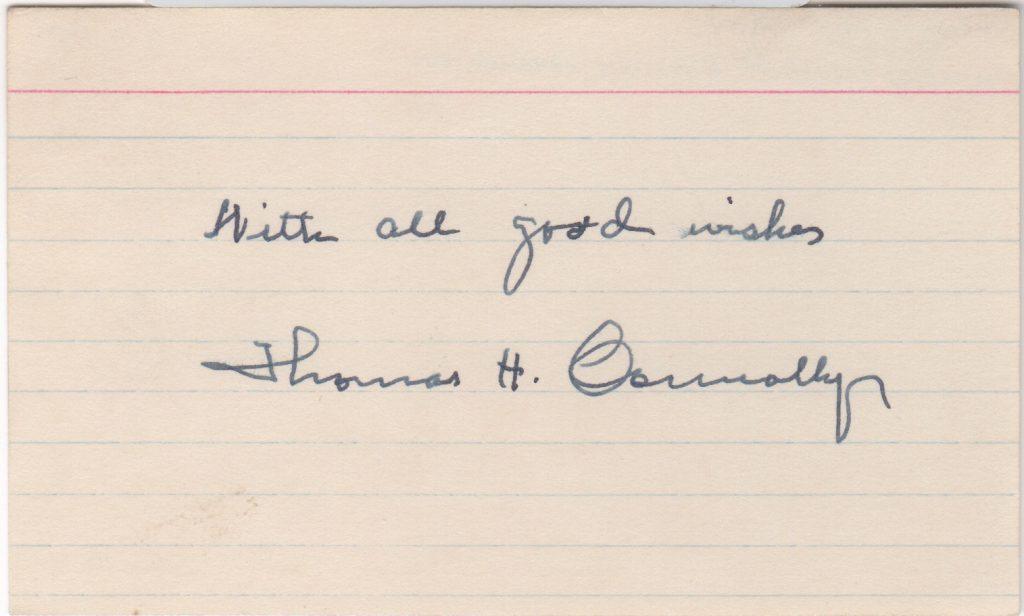 With all good wishes
Thomas H. Connolly